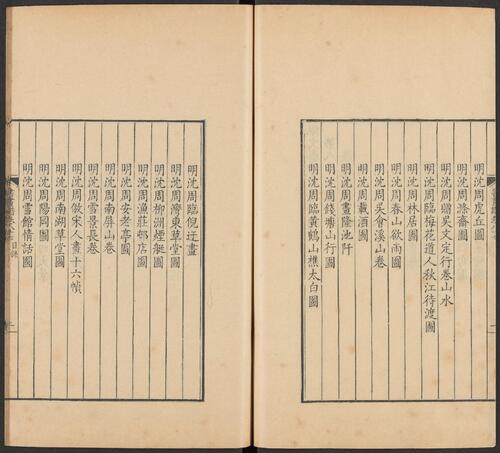 明沈周虎丘圖
明沈周滌齋圖
明沈周贈吳文定行卷山水
明沈周臨梅花道人秋江待渡圖
明沈周林居圖
明沈周春山欲雨圖
明沈周天會溪山卷
明沈周載酒圖
明沈周畫隆池阡
明沈周錢塘山行圖
明沈周臨黃鶴山樵太白圖
明沈周臨倪迂畫
明沈周濟東草堂圖
明沈周柳洲煙艇圖
明沈周漁莊邨店圖
明沈周安老亭圖
明沈周南屏山卷
明沈周雪景長卷
明沈周倣宋人畫十六幀
明沈周南湖草堂圖
明沈周陽岡圖
明沈周雪館情話圖